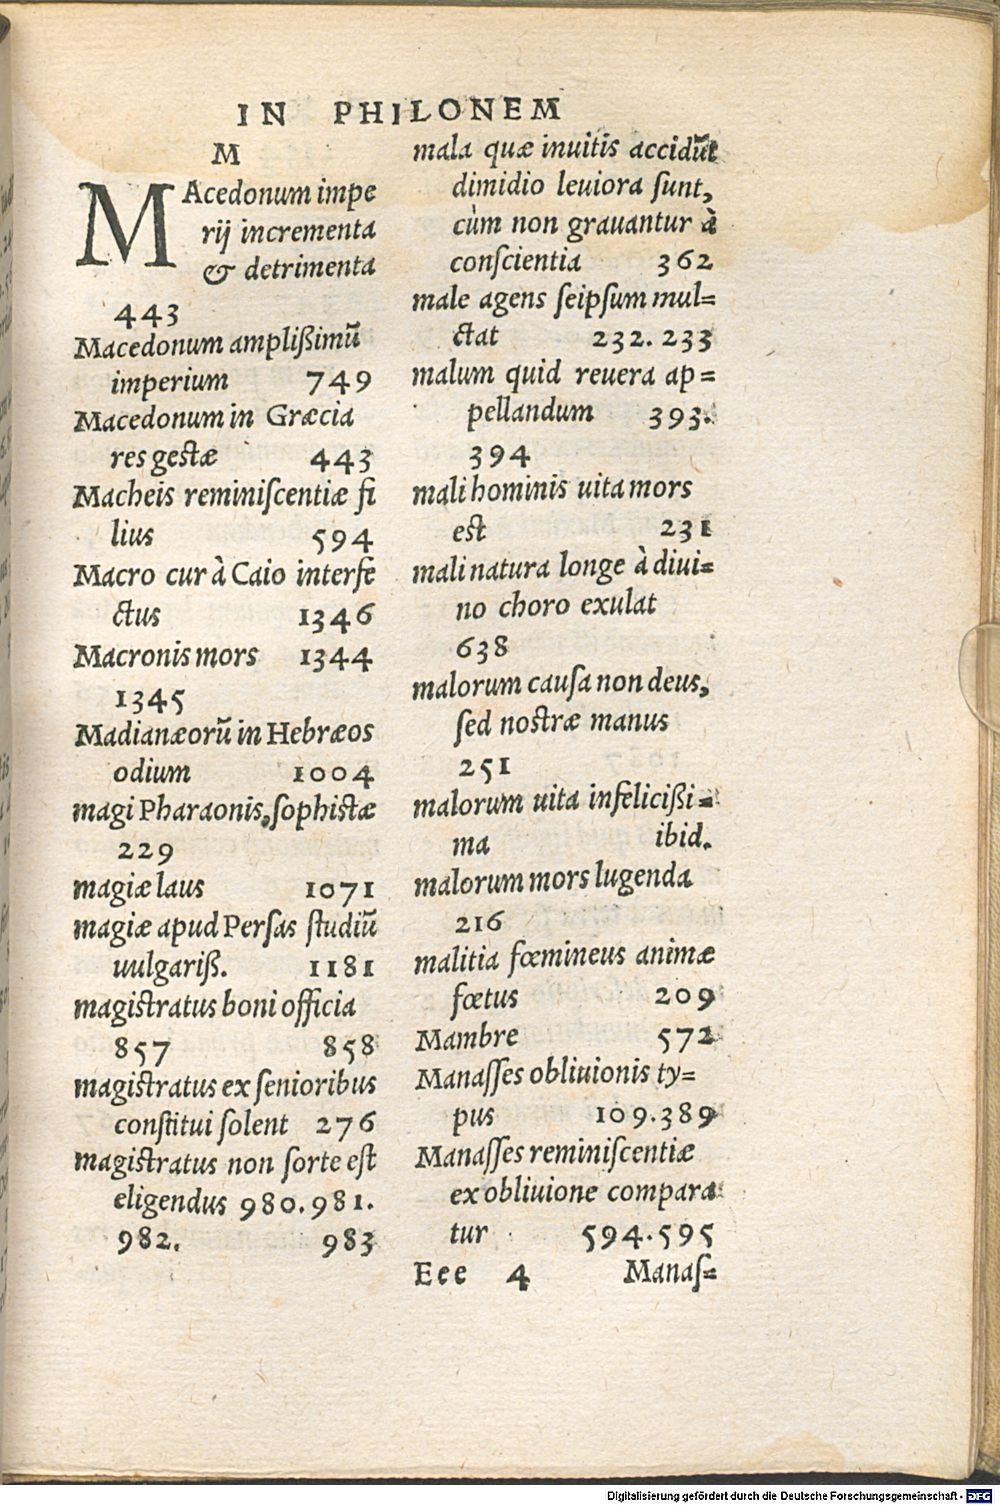 IN PHILONEM
M
MAcedonum impe
rij incrementa
& detrimenta
443
Macedonum amplißimũ
imperium 749
Macedonum in Græcia
res gestæ 443
Macheis reminiſcentiæ fi
lius 594
Macro cur à Caio interfe
ctus 1346
Macronis mors 1344
1345
Madianæorũ in Hebræos
odium 1004
magi Pharaonis, ſophistæ
229
magiæ laus 1071
magiæ apud Perſas ſtudiũ
uulgariß. 1181
magistratus boni officia
857 858
magistratus ex ſenioribus
conſtitui ſolent 276
magistratus non ſorte eſt
eligendus 980.981.
982. 983
mala quæ inuitis accidũt
dimidio leuiora ſunt,
cùm non grauantur à
conſcientia 362
male agens ſeipſum mul=
ctat 232. 233
malum quid reuera ap=
pellandum 393.
394
mali hominis uita mors
est 231
mali natura longe à diui=
no choro exulat
638
malorum cauſa non deus,
ſed nostræ manus
251
malorum uita infelicißi=
ma ibid.
malorum mors lugenda
216
malitia fœmineus animæ
fœtus 209
Mambre 572
Manaſſes obliuionis ty=
pus 109.389
Manaſſes reminiſcentiæ
ex obliuione compara
tur 594.595
Eee 4 Manaſ=
Digitalisierung gefördert durch die Deutsche Forschungsgemeinschaft - DFG